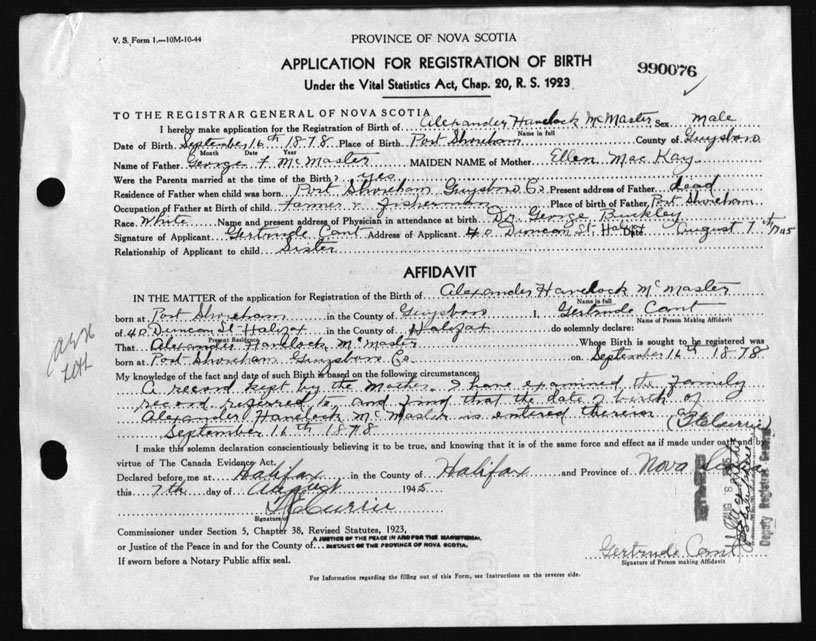 V. S. Form 1.—10M-10-44
PROVINCE OF NOVA SCOTIA
APPLICATION FOR REGISTRATION OF BIRTH
990076
Under the Vital Statistics Act, Chap. 20, R. S. 1923
TO THE REGISTRAR GENERAL OF NOVA SCOTIA
I hereby make application for the Registration of Birth of Alexander Havelock McMaster Sex Male
Name in full
Date of Birth September 16th 1878 Place of Birth Port Shoreham County of Guysboro
Month Date Year
Name of Father George F. McMaster MAIDEN NAME of Mother Ellen MacKay
Were the Parents married at the time of the Birth? yes
Residence of Father when child was born Port Shoreham Guysboro Co. Present address of Father dead
Occupation of Father at Birth of child farmer & fisherman Place of birth of Father Port Shoreham
Race White Name and present address of Physician in attendance at birth Dr. George Buckley
Signature of Applicant Gertrude Cant Address of Applicant 40 Duncan St Halifax Date August 7th 1945
Relationship of Applicant to child Sister
AFFIDAVIT
IN THE MATTER of the application for Registration of the Birth of Alexander Havelock McMaster
Name in full
born at Port Shoreham in the County of Guysboro I, Gertrude Cant
Name of Person Making Affidavit
of 40 Duncan St Halifax in the County of Halifax do solemnly declare:
Present Residence
That Alexander Havelock McMaster Whose Birth is sought to be registered was
born at Port Shoreham Guysboro Co. on September 16th 1878
My knowledge of the fact and date of such Birth is based on the following circumstances:
A record kept by the Mother. I have examined the family
record referred to, and find that the date of birth of
Alexander Havelock McMaster is entered therein as
September 16th 1878 (F C Currie)
I make this solemn declaration conscientiously believing it to be true, and knowing that it is of the same force and effect as if made under oath and by
virtue of The Canada Evidence Act.
Declared before me at Halifax in the County of Halifax and Province of Nova Scotia
this 7th day of August 1945
F C Currie
Signature of
Commissioner under Section 5, Chapter 38, Revised Statutes, 1923,
or Justice of the Peace in and for the County of A JUSTICE OF THE PEACE IN AND FOR THE MAGISTERIAL
DISTRICT OF THE PROVINCE OF NOVA SCOTIA.
If sworn before a Notary Public affix seal.
Gertrude Cant
Signature of Person making Affidavit
For Information regarding the filling out of this Form, see Instructions on the reverse side.
AUG 8
Deputy Registrar General